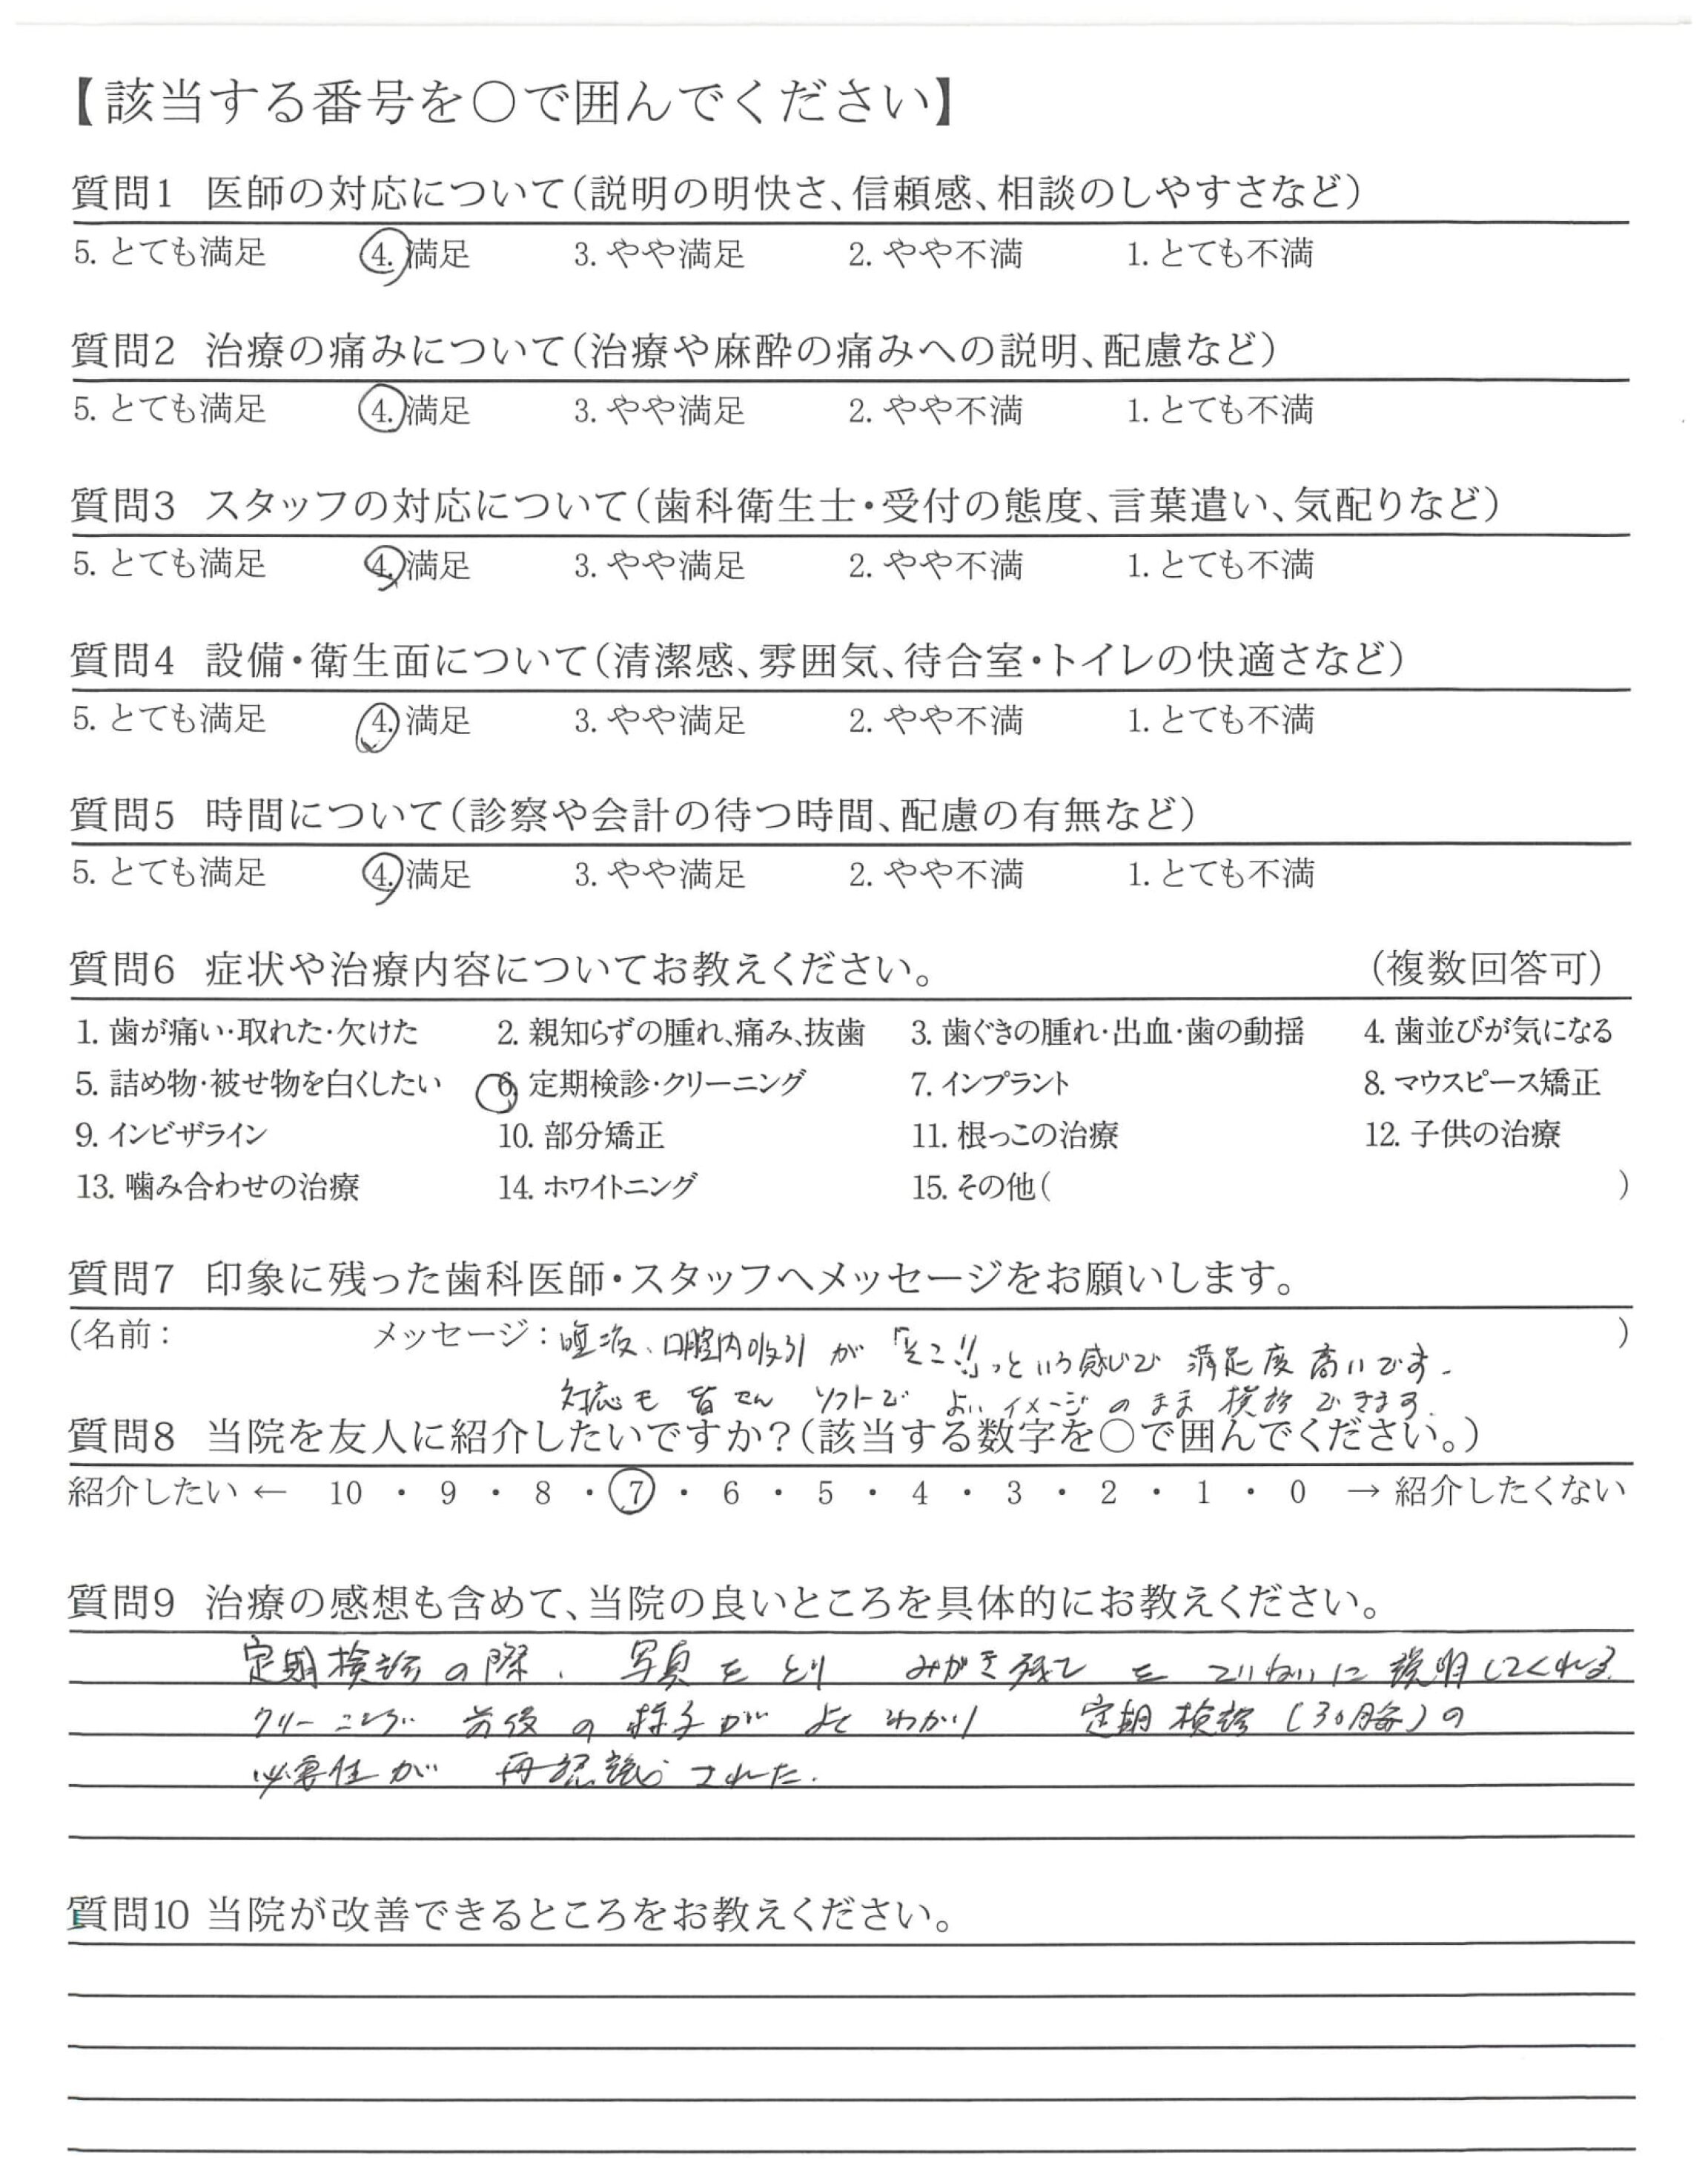 【該当する番号を○で囲んでください】
質問1 医師の対応について(説明の明快さ、信頼感、相談のしやすさなど)
5. とても満足 4. 満足 3. やや満足 2. やや不満 1. とても不満
質問2 治療の痛みについて(治療や麻酔の痛みへの説明、配慮など)
5. とても満足 4. 満足 3. やや満足 2. やや不満 1. とても不満
質問3 スタッフの対応について(歯科衛生士・受付の態度、言葉遣い、気配りなど)
5. とても満足 4. 満足 3. やや満足 2. やや不満 1. とても不満
質問4 設備・衛生面について(清潔感、雰囲気、待合室・トイレの快適さなど)
5. とても満足 4. 満足 3. やや満足 2. やや不満 1. とても不満
質問5 時間について(診察や会計の待つ時間、配慮の有無など)
5. とても満足 4. 満足 3. やや満足 2. やや不満 1. とても不満
質問6 症状や治療内容についてお教えください。 (複数回答可)
1. 歯が痛い・取れた・欠けた 2. 親知らずの腫れ、痛み、抜歯 3. 歯ぐきの腫れ・出血・歯の動揺 4. 歯並びが気になる
5. 詰め物・被せ物を白くしたい 6. 定期検診・クリーニング 7. インプラント 8. マウスピース矯正
9. インビザライン 10. 部分矯正 11. 根っこの治療 12. 子供の治療
13. 噛み合わせの治療 14. ホワイトニング 15. その他( )
質問7 印象に残った歯科医師・スタッフへメッセージをお願いします。
(名前: メッセージ: 唾液、口腔内吸引が「そこ!!」っという感じで 満足度高いです。 )
対応も皆さん ソフトで よいイメージのまま 検診できます。
質問8 当院を友人に紹介したいですか?(該当する数字を○で囲んでください。)
紹介したい ← 10 ・ 9 ・ 8 ・ 7 ・ 6 ・ 5 ・ 4 ・ 3 ・ 2 ・ 1 ・ 0 → 紹介したくない
質問9 治療の感想も含めて、当院の良いところを具体的にお教えください。
定期検診の際、写真をとり みがき残しをていねいに説明してくれる。
クリーニング前後の様子がよくわかり 定期検診(3ヶ月毎)の
必要性が 再認識された.
質問10 当院が改善できるところをお教えください。